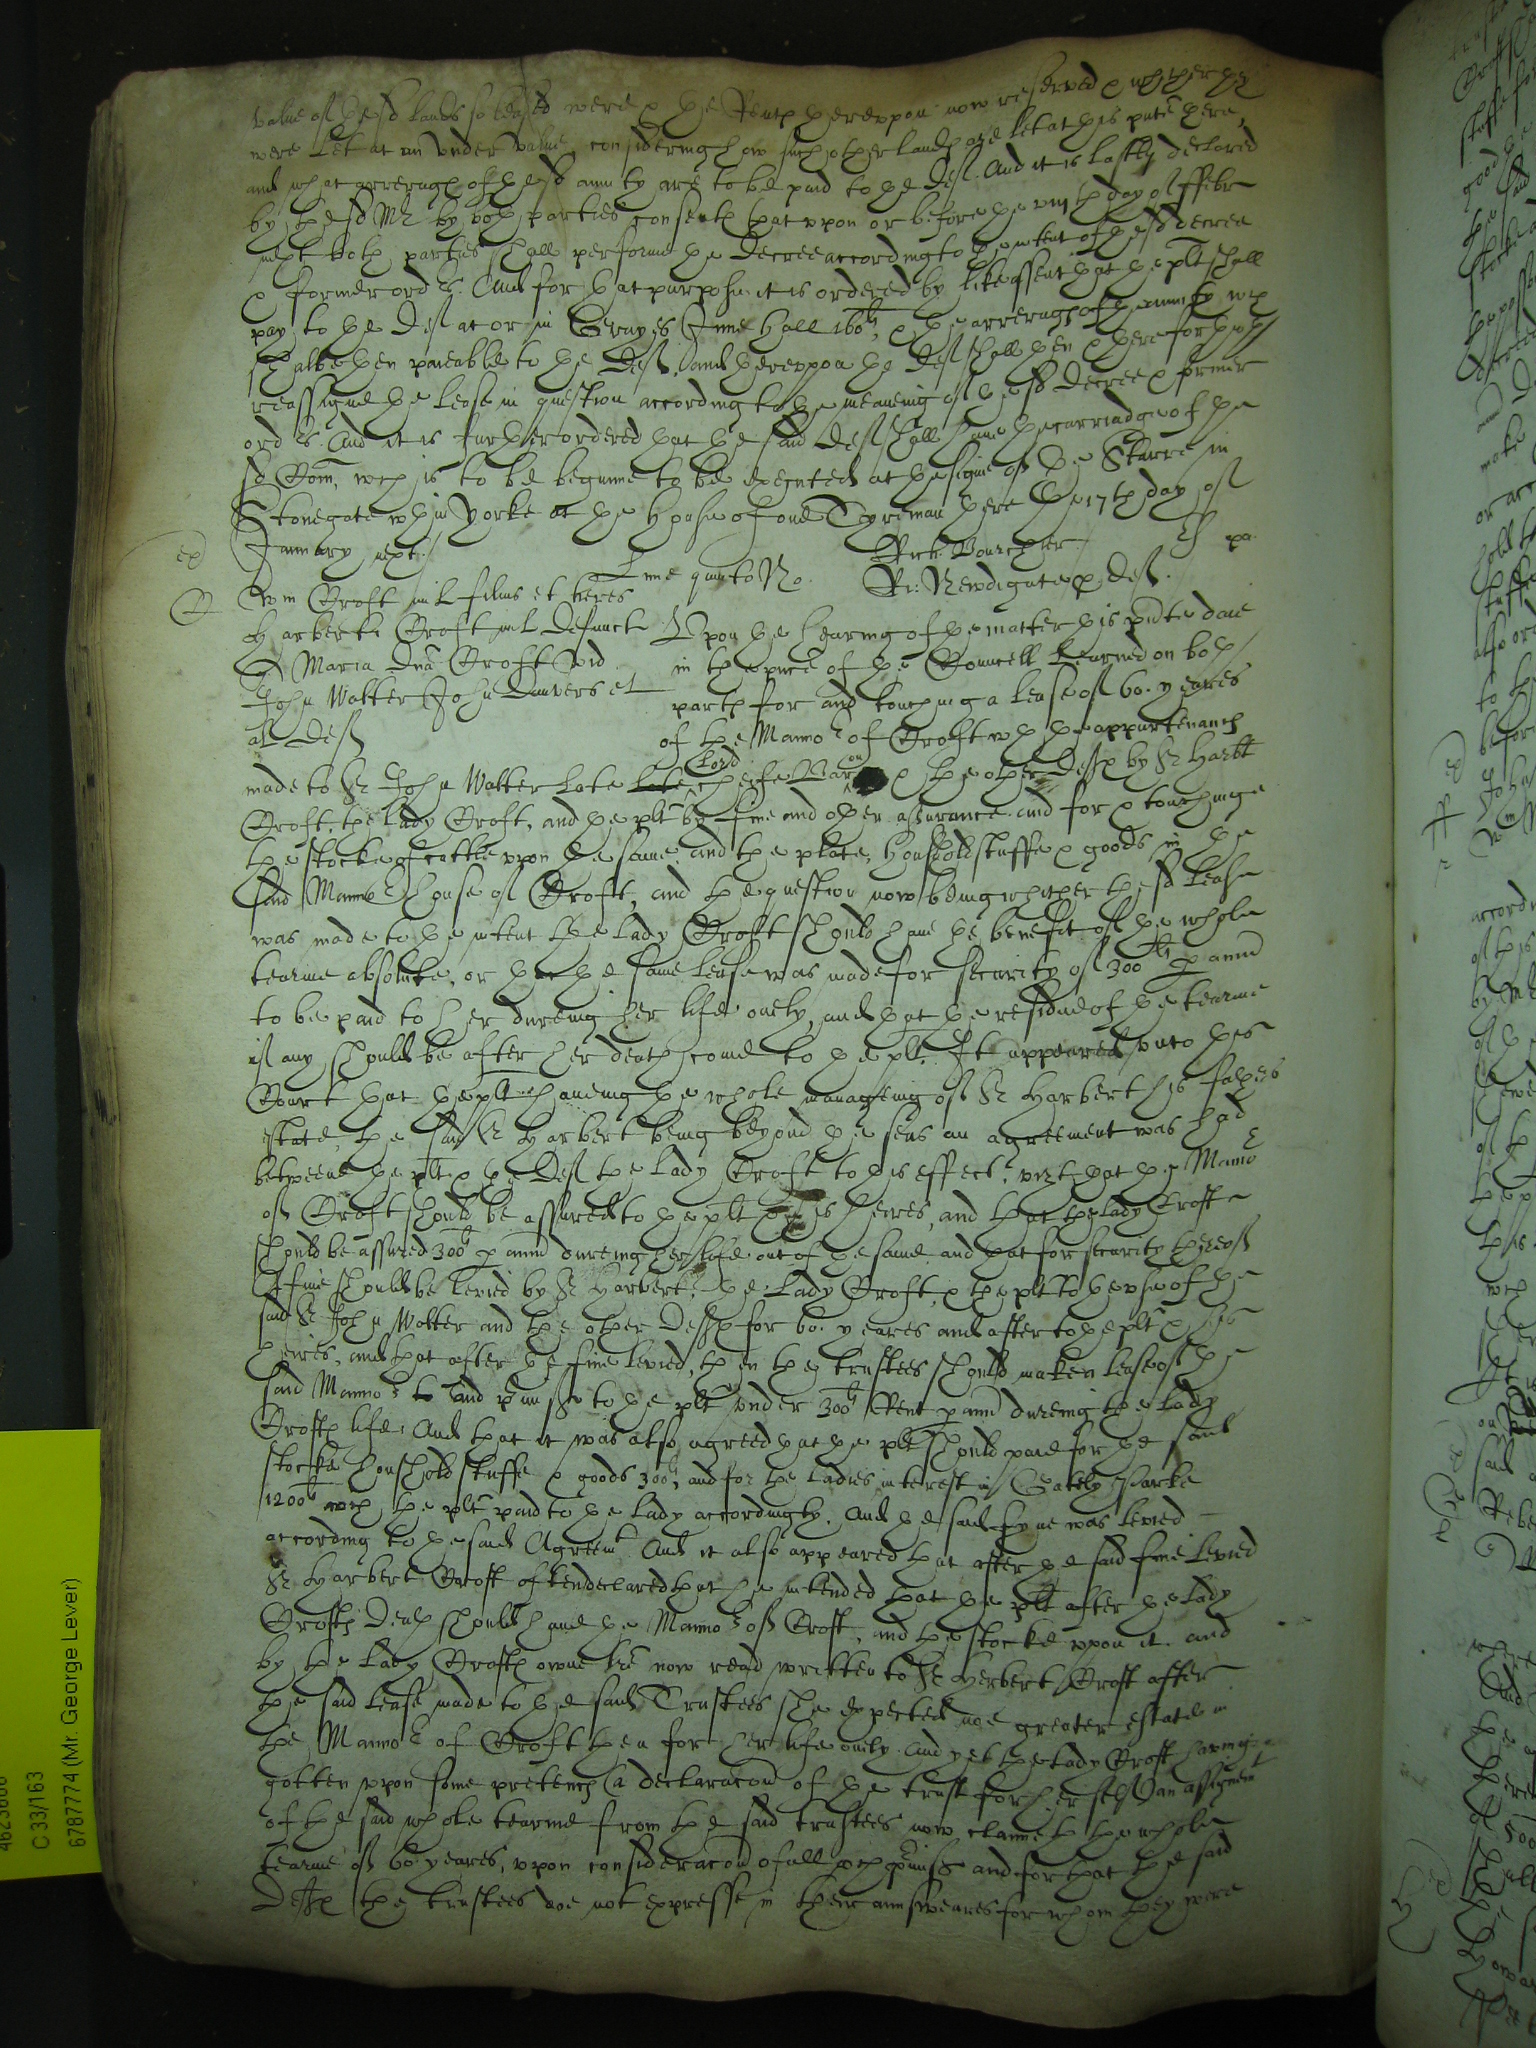 value of the sd lands so leased were & the Rents thereupon now reserved & whether they
were Let at an under value, considering how such other lands are let at this pnte there,
and what arrerages of the sd annuty are to be paid to the Deft. And it is lastly declared
by the sd Mr by both parties consents that upon or before the day of ffebr
next both parties shall performe the Decree according to the intent of the sd decree
& former order. And for that purpose it is ordered by like assent that the plt shall
pay to the Deft at or in Grayes Inne Hall 160li, & the arrerages of the annuity wch
shalbe then paieable to the Deft, and thereuppon the Deft shall then & there forthwth
reassigne the Lease in question according to the meaneing of the sd Decree & former
order. And it is further ordered that the said Deft shall have the carriadge of the
sd Com, wch is to be begunne to be executed at the signe of the Starre in
Stonegate wthin Yorke at the house of one Tyreman there the 17th day of
January next.
Bourcher pa.
Lune quinto No. Ri: Newdigate p Deft.
Wm Croft mil filius et heres
Harberti Croft mil Defunct
Q Maria Dna Croft vid
John Walter John Danvers et
al Deft
Upon the hearing of the matter this pnte daie
in the pnce of the Councell Learned on both
parts for and touching a lease of 60. yeares
of the Manno of Croft wth the appurtenancs
made to Sr John Walter late late Lord cheife Baron & the other Defts by Sr Harbt
Croft, the Lady Croft, and the plt by fine and other assurance and for & touchinge
the stocke of cattle upon the same, and the plate, houshold stuffe & goods in the
said Manno house of Croft, and the question now being whither the sd lease
was made to the intent the Lady Croft should have the benefit of the whole
tearme absolute, or that the same Lease was made for security of 300li p ann
to be paid to her dureing her life onely, and that the residue of the tearme
if any should be after her death come to the plt. It appeared unto this
Court that the plt haveing the whole manageing of Sr Harbert his fathers
estate, the said Sr Harbert being beyond the seas an agreement was had
betweene the plt & the Deft the Lady Croft to this effect, vizt that the Manno
of Croft should be assured to the plt & his heires, and that the Lady Croft
should be assured 300li p ann dureing her life out of the same and that for security thereof
A fine should be levied by Sr Harbert, the Lady Croft, & the plt to the use of the
said Sr John Walter and the other Defts for 60. yeares and after to the plt & his
heires, and that after the fine levied, then the trustees should make a lease of the
said Manno and pmisses to the plt under 300li Rent p ann dureing the Lady
Crofts life. And that it was also agreed that the plt should paie for the said
stocke houshold stuffe & goods 300li, and for the Ladies interest in Gatly Parke
1200li wch the plt paid to the Lady accordingly. And the said fyne was levied
according to the said Agreemt. And it also appeared that after the said fine levied
Sr Harbert Croft often declared that he intended that the plt after the Lady
Crofts Death should have the Manno of Croft, and the stocke upon it. and
by the Lady Crofts owne lre now read written to Sr Herbert Croft after
the said lease made to the said Trustees she expected noe greater estate in
the Manno of Croft then for her life onely. And yet the Lady Croft having
gotten uppon some pretence (a declaracon of the trust for her self) an assignemt
of the said whole tearme from the said trustees now claimeth the whole
tearme of 60 yeares, upon consideracon of all wch pmisses and for that the said
Defts the trustees doe not expresse in their answeares for whom they were
C 33/163
6787774 (Mr. George Lever)